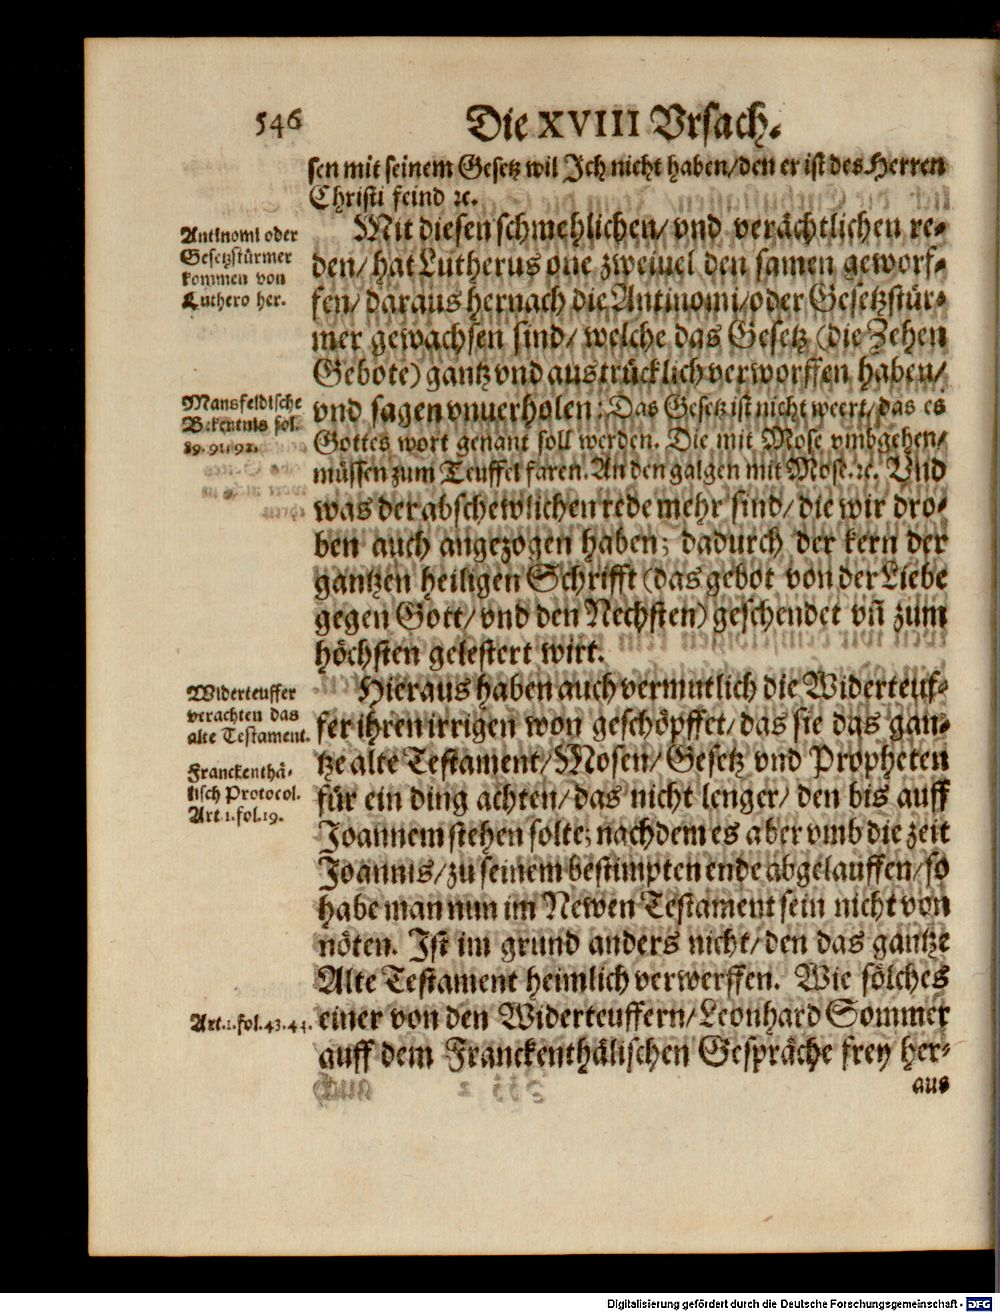 546
Die XVIII Vrsach.
sen mit seinem Gesetz wil Ich nicht haben/den er ist des Herren
Christi feind ꝛc.
Mit diesen schmehlichen/ vnd verächtlichen re-
den/ hat Lutherus one zweiuel den samen geworf-
fen/ daraus hernach die Antinomi/oder Gesetzstür-
mer gewachsen sind/ welche das Gesetz (die Zehen
Gebote) gantz vnd austrücklich verworffen haben/
vnd sagen vnuerholen: Das Gesetz ist nicht weert/das es
Gottes wort genant soll werden. Die mit Mose vmbgehen/
müssen zum Teuffel faren. An den galgen mit Mose.ꝛc. Vnd
was der abschewlichen rede mehr sind/ die wir dro-
ben auch angezogen haben; dadurch der kern der
gantzen heiligen Schrifft (das gebot von der Liebe
gegen Gott/ vnd den Nechsten) geschendet vñ zum
höchsten gelestert wirt.
Hieraus haben auch vermutlich die Widerteuf-
fer ihren irrigen won geschöpffet/ das sie das gan-
tze alte Testament/ Mosen/ Gesetz vnd Propheten
für ein ding achten/ das nicht lenger/ den bis auff
Joannem stehen solte; nachdem es aber vmb die zeit
Joannis/ zu seinem bestimpten ende abgelauffen/ so
habe man nun im Newen Testament sein nicht von
nöten. Ist im grund anders nicht/ den das gantze
Alte Testament heimlich verwerffen. Wie sölches
einer von den Widerteuffern/ Leonhard Sommer
auff dem Franckenthälischen Gespräche frey her-
aus
Antinomi oder
Gesetzstürmer
kommen von
Luthero her.
Mansfeldische
Bekentnis fol.
89. 91. 92.
Widerteuffer
verachten das
alte Testament.
Franckenthä-
lisch Protocol.
Art.1.fol.19.
Art.1.fol.43.44.
Digitalisierung gefördert durch die Deutsche Forschungsgemeinschaft - DFG